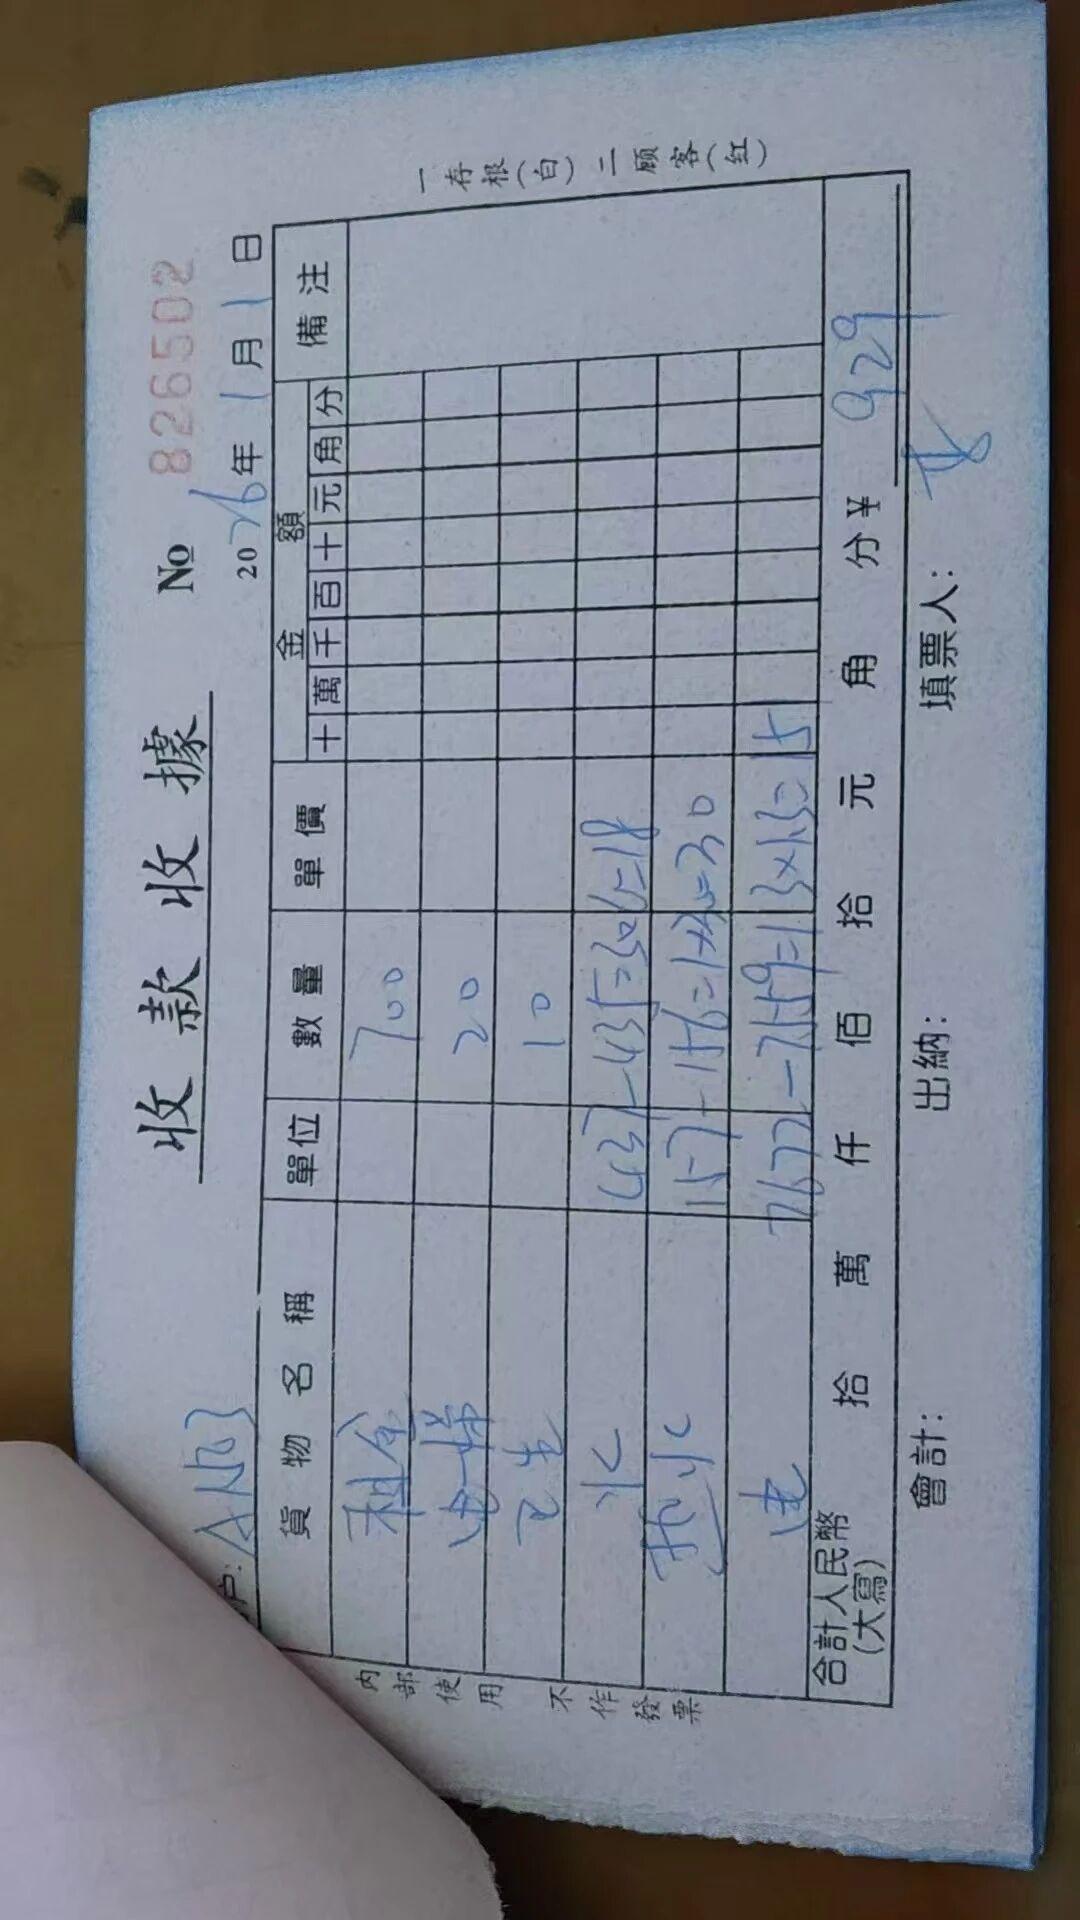 收款收據
No 826502
2026年1月1日
貨物名稱 單位 數量 單價 金額 備注
十萬千百十元角分
租金 700
电梯 20
卫生 10
水 18
热水 30
电 7677-7559=1 15
合計人民幣(大寫) 拾 萬 仟 佰 拾 元 角 分 ¥ 929
會計: 出納: 填票人:
一存根(白) 二顾客(红)
内部使用 不作發票